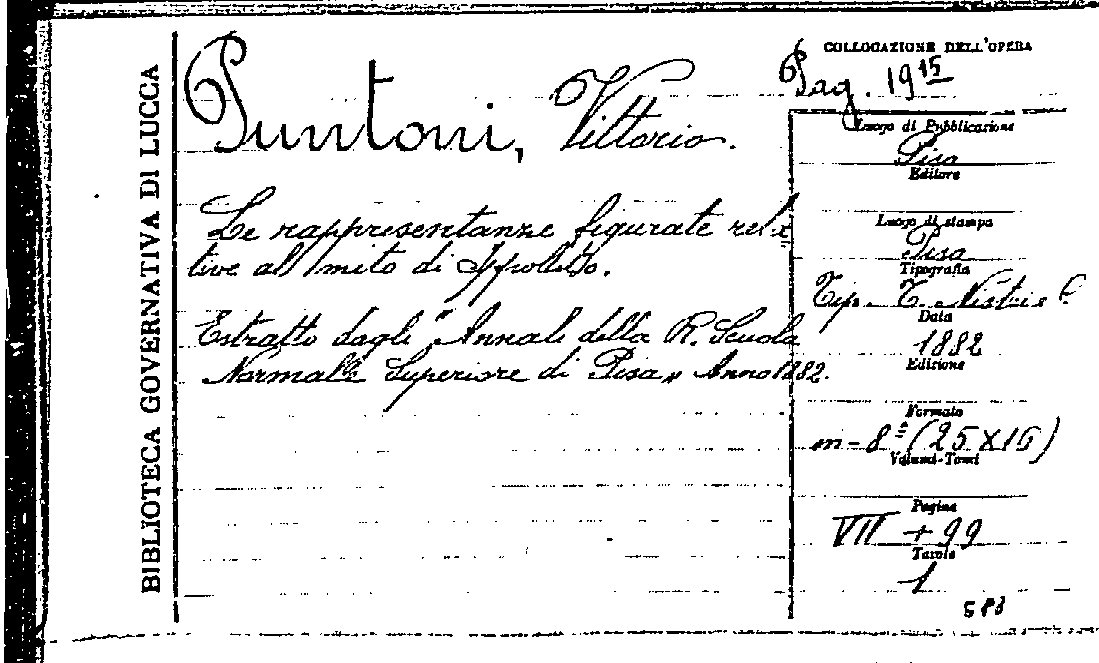 BIBLIOTECA GOVERNATIVA DI LUCCA
Puntoni, Vittorio.
Le rappresentanze figurate rela
tive al mito di Ippolito.
Estratto dagli "Annali della R. Scuola
Normale Superiore di Pisa" Anno 1882.
COLLOCAZIONE DELL'OPERA
Pag. 19 15
Luogo di Pubblicazione
Pisa
Editore
Luogo di stampa
Pisa
Tipografia
Tip. T. Nistri e C.
Data
1882
Edizione
Formato
in-8º (25X16)
Volumi-Tomi
Pagine
VII + 99
Tavole
1